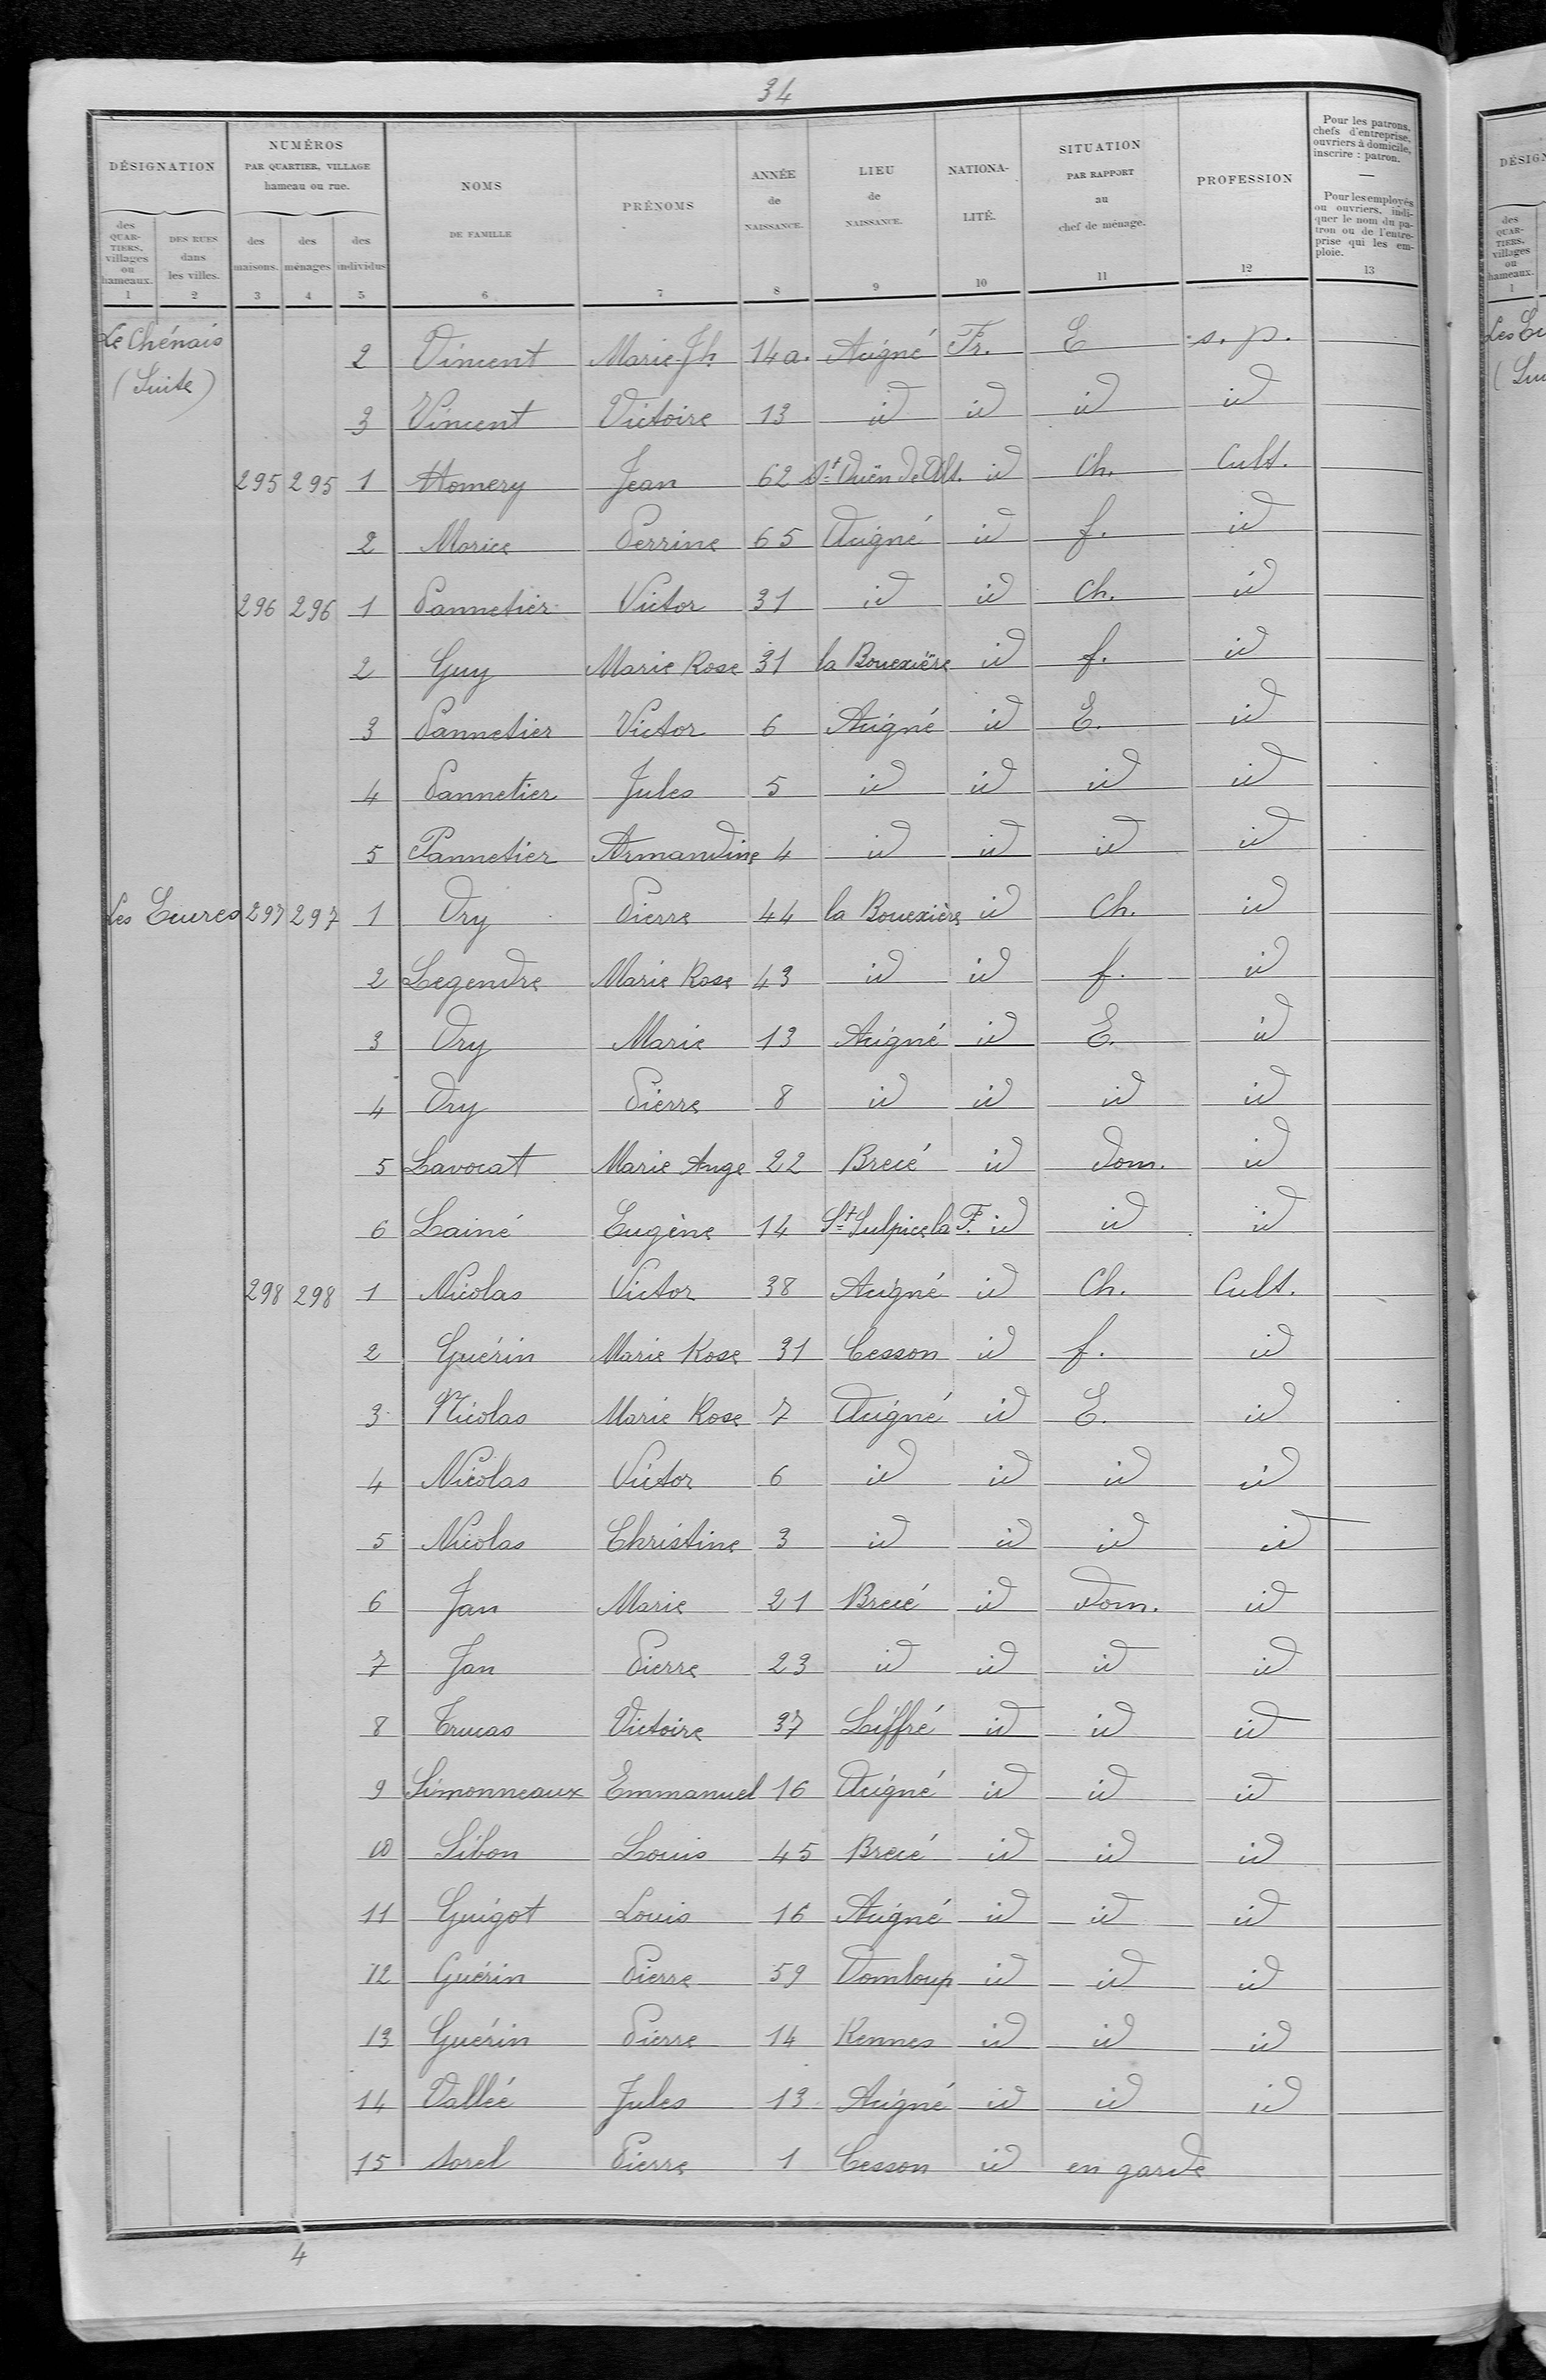 34
DÉSIGNATION
NUMÉROS
PAR QUARTIER, VILLAGE
hameau ou rue.
NOMS
DE FAMILLE
PRÉNOMS
ANNÉE
de
NAISSANCE.
LIEU
de
NAISSANCE.
NATIONA-
LITÉ.
SITUATION
PAR RAPPORT
au
chef de ménage.
PROFESSION
Pour les patrons,
chefs d'entreprise,
ouvriers à domicile,
inscrire : patron.
—
Pour les employés
ou ouvriers, indi-
quer le nom du pa-
tron ou de l'entre-
prise qui les em-
ploie.
des
QUAR-
TIERS,
villages
ou
hameaux.
DES RUES
dans
les villes.
des
maisons.
des
ménages
des
individus
1 2 3 4 5 6 7 8 9 10 11 12 13
Le Chénais 2 Vincent Marie Jh. 14 a. Acigné Fr. E s. p.
(Suite)
3 Vincent Victoire 13 id id id id
295 295 1 Homery Jean 62 St Ouën de Alt. id Ch. Cult.
2 Morice Perrine 65 Acigné id f. id
296 296 1 Pannetier Victor 31 id id Ch. id
2 Guy Marie Rose 31 la Bouexière id f. id
3 Pannetier Victor 6 Acigné id E. id
4 Pannetier Jules 5 id id id id
5 Pannetier Armandine 4 id id id id
Les Eures 297 297 1 Ory Pierre 44 la Bouexière id Ch. id
2 Legendre Marie Rose 43 id id f. id
3 Ory Marie 13 Acigné id E. id
4 Ory Pierre 8 id id id id
5 Lavocat Marie Ange 22 Brecé id dom. id
6 Lainé Eugène 14 St Sulpice la F. id id id
298 298 1 Nicolas Victor 38 Acigné id Ch. Cult.
2 Guérin Marie Rose 31 Cesson id f. id
3 Nicolas Marie Rose 7 Acigné id E. id
4 Nicolas Victor 6 id id id id
5 Nicolas Christine 3 id id id id
6 Jan Marie 21 Brecé id dom. id
7 Jan Pierre 23 id id id id
8 Trucas Victoire 37 Liffré id id id
9 Simonneaux Emmanuel 16 Acigné id id id
10 Sibon Louis 45 Brecé id id id
11 Guigot Louis 16 Acigné id id id
12 Guérin Pierre 59 Domloup id id id
13 Guérin Pierre 14 Rennes id id id
14 Vallée Jules 13 Acigné id id id
15 Sorel Pierre 1 Cesson id en garde
4